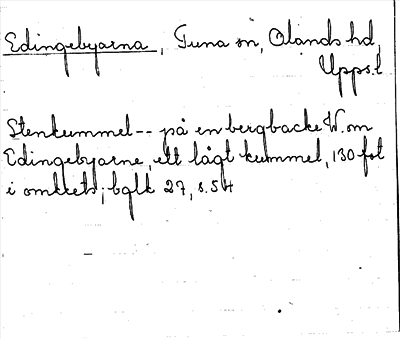 Edingebyarna, Tuna sn, Olands hd,
Upps.l
Stenkummel-- på en bergbacke W. om
Edingebyarne, ett lågt kummel, 130 fot
i omkrets; bqlk 27, s. 54